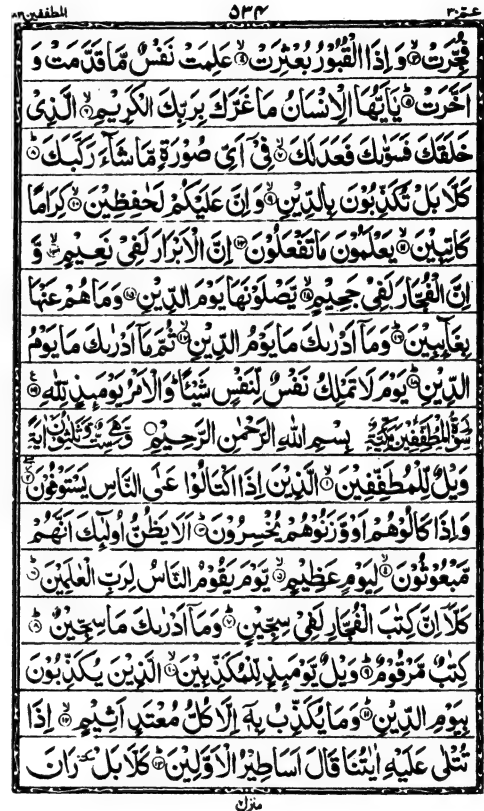 عـمّ ٣٠ ٥٣٤ المطففين ٨٣
فُجِّرَتْ ۙ﴿۳﴾ وَاِذَا الْقُبُوْرُ بُعْثِرَتْ ۙ﴿۴﴾ عَلِمَتْ نَفْسٌ مَّا قَدَّمَتْ وَ
اَخَّرَتْ ؕ﴿۵﴾ يٰۤاَيُّهَا الْاِنْسَانُ مَا غَرَّكَ بِرَبِّكَ الْكَرِيْمِ ۙ﴿۶﴾ الَّذِىْ
خَلَقَكَ فَسَوّٰىكَ فَعَدَلَكَ ۙ﴿۷﴾ فِىْۤ اَىِّ صُوْرَةٍ مَّا شَآءَ رَكَّبَكَ ؕ﴿۸﴾
كَلَّا بَلْ تُكَذِّبُوْنَ بِالدِّيْنِ ۙ﴿۹﴾ وَاِنَّ عَلَيْكُمْ لَحٰفِظِيْنَ ۙ﴿۱۰﴾ كِرَامًا
كَاتِبِيْنَ ۙ﴿۱۱﴾ يَعْلَمُوْنَ مَا تَفْعَلُوْنَ ﴿۱۲﴾ اِنَّ الْاَبْرَارَ لَفِىْ نَعِيْمٍ ۚ﴿۱۳﴾ وَّ
اِنَّ الْفُجَّارَ لَفِىْ جَحِيْمٍ ۚۖ﴿۱۴﴾ يَّصْلَوْنَهَا يَوْمَ الدِّيْنِ ﴿۱۵﴾ وَمَا هُمْ عَنْهَا
بِغَآئِبِيْنَ ؕ﴿۱۶﴾ وَمَاۤ اَدْرٰىكَ مَا يَوْمُ الدِّيْنِ ۙ﴿۱۷﴾ ثُمَّ مَاۤ اَدْرٰىكَ مَا يَوْمُ
الدِّيْنِ ؕ﴿۱۸﴾ يَوْمَ لَا تَمْلِكُ نَفْسٌ لِّنَفْسٍ شَيْئًا ؕ وَالْاَمْرُ يَوْمَئِذٍ لِّلّٰهِ ﴿۱۹﴾
سُوْرَةُ الْمُطَفِّفِيْنَ مَكِّيَّةٌ بِسْمِ اللّٰهِ الرَّحْمٰنِ الرَّحِيْمِ وَّهِىَ سِتٌّ وَّثَلٰثُوْنَ اٰيَةً
وَيْلٌ لِّلْمُطَفِّفِيْنَ ۙ﴿۱﴾ الَّذِيْنَ اِذَا اكْتَالُوْا عَلَى النَّاسِ يَسْتَوْفُوْنَ ۖ﴿۲﴾
وَاِذَا كَالُوْهُمْ اَوْ وَّزَنُوْهُمْ يُخْسِرُوْنَ ؕ﴿۳﴾ اَلَا يَظُنُّ اُولٰٓئِكَ اَنَّهُمْ
مَّبْعُوْثُوْنَ ۙ﴿۴﴾ لِيَوْمٍ عَظِيْمٍ ۙ﴿۵﴾ يَّوْمَ يَقُوْمُ النَّاسُ لِرَبِّ الْعٰلَمِيْنَ ؕ﴿۶﴾
كَلَّاۤ اِنَّ كِتٰبَ الْفُجَّارِ لَفِىْ سِجِّيْنٍ ؕ﴿۷﴾ وَمَاۤ اَدْرٰىكَ مَا سِجِّيْنٌ ؕ﴿۸﴾
كِتٰبٌ مَّرْقُوْمٌ ؕ﴿۹﴾ وَيْلٌ يَّوْمَئِذٍ لِّلْمُكَذِّبِيْنَ ۙ﴿۱۰﴾ الَّذِيْنَ يُكَذِّبُوْنَ
بِيَوْمِ الدِّيْنِ ؕ﴿۱۱﴾ وَمَا يُكَذِّبُ بِهٖۤ اِلَّا كُلُّ مُعْتَدٍ اَثِيْمٍ ۙ﴿۱۲﴾ اِذَا
تُتْلٰى عَلَيْهِ اٰيٰتُنَا قَالَ اَسَاطِيْرُ الْاَوَّلِيْنَ ؕ﴿۱۳﴾ كَلَّا بَلْ ٚ رَانَ
منزل